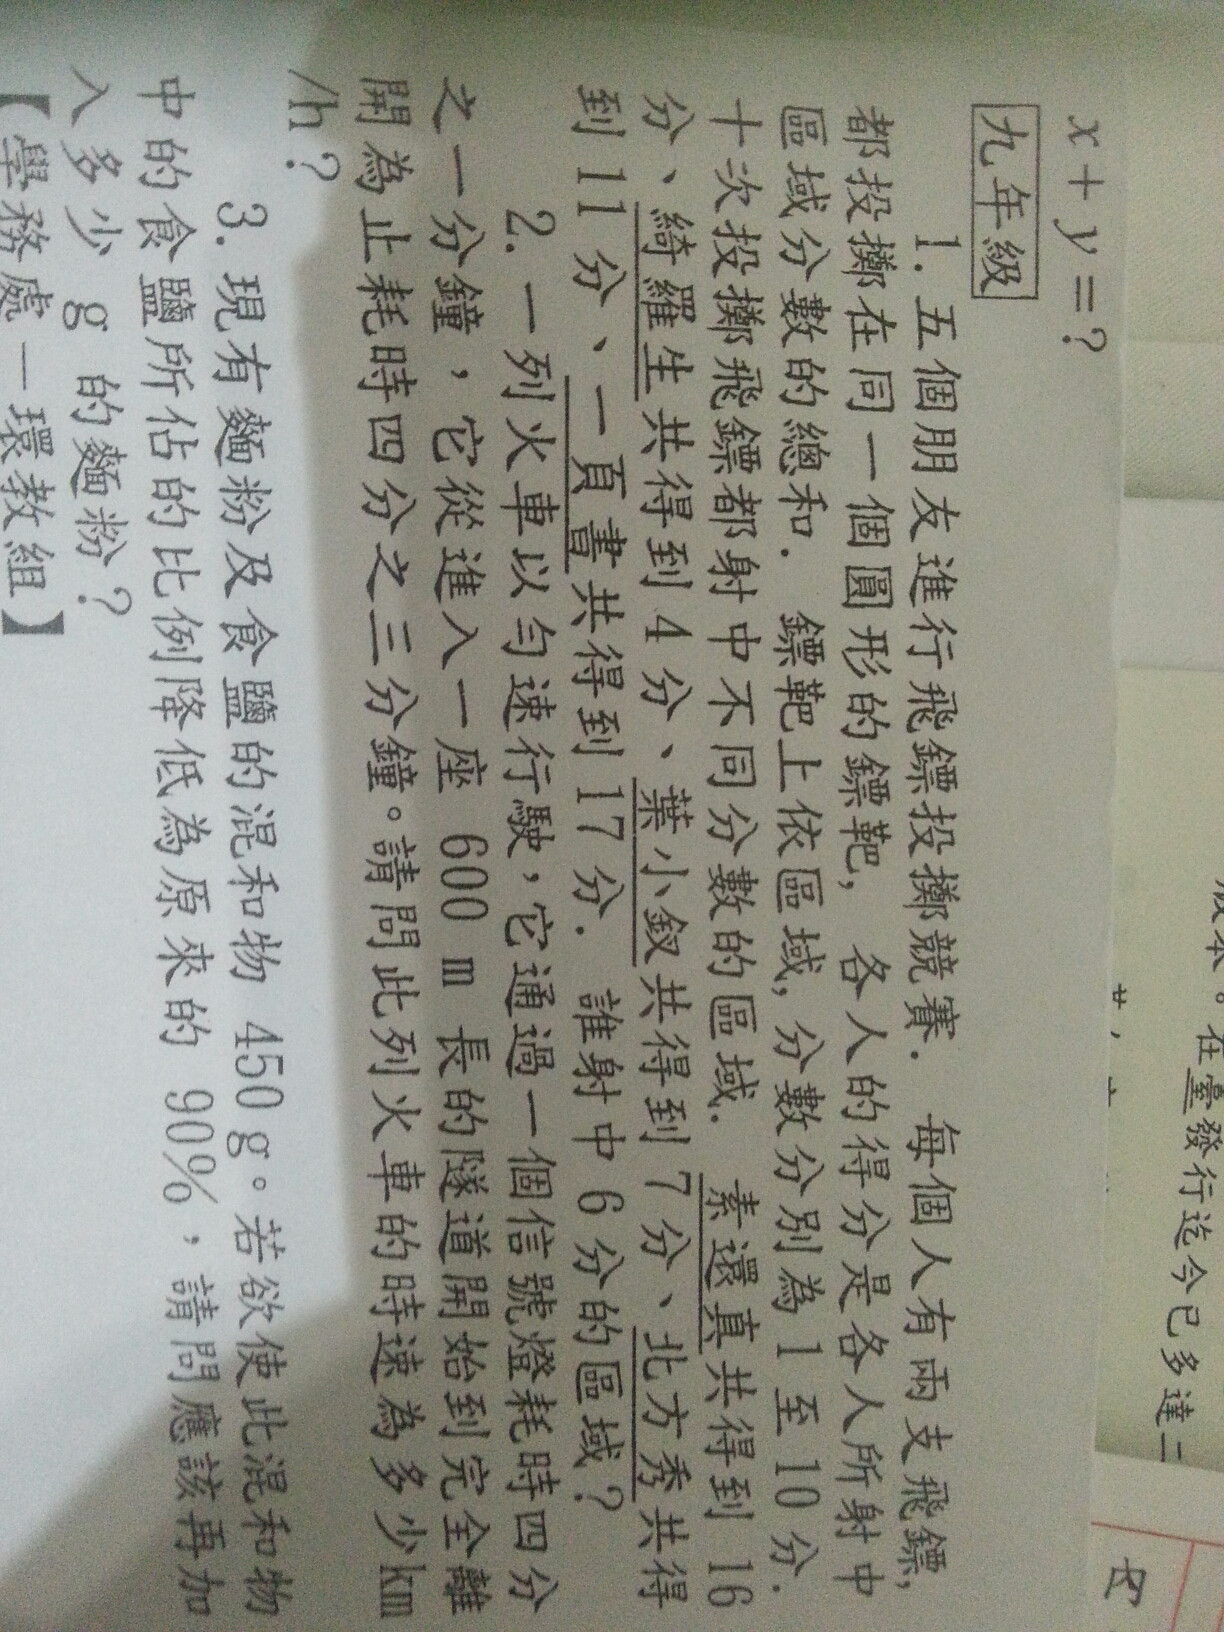 版本。在臺發行迄今已多達二
x + y = ?
九年級
1. 五個朋友進行飛鏢投擲競賽． 每個人有兩支飛鏢，
都投擲在同一個圓形的鏢靶， 各人的得分是各人所射中
區域分數的總和． 鏢靶上依區域，分數分別為 1 至 10 分．
十次投擲飛鏢都射中不同分數的區域． 素還真共得到 16
分、綺羅生共得到 4 分、葉小釵共得到 7 分、北方秀共得
到 11 分、一頁書共得到 17 分． 誰射中 6 分的區域？
2. 一列火車以勻速行駛，它通過一個信號燈耗時四分
之一分鐘，它從進入一座 600 m 長的隧道開始到完全離
開為止耗時四分之三分鐘。請問此列火車的時速為多少km
/h？
3. 現有麵粉及食鹽的混和物 450 g。若欲使此混和物
中的食鹽所佔的比例降低為原來的 90%，請問應該再加
入多少 g 的麵粉？
【學務處－環教組】